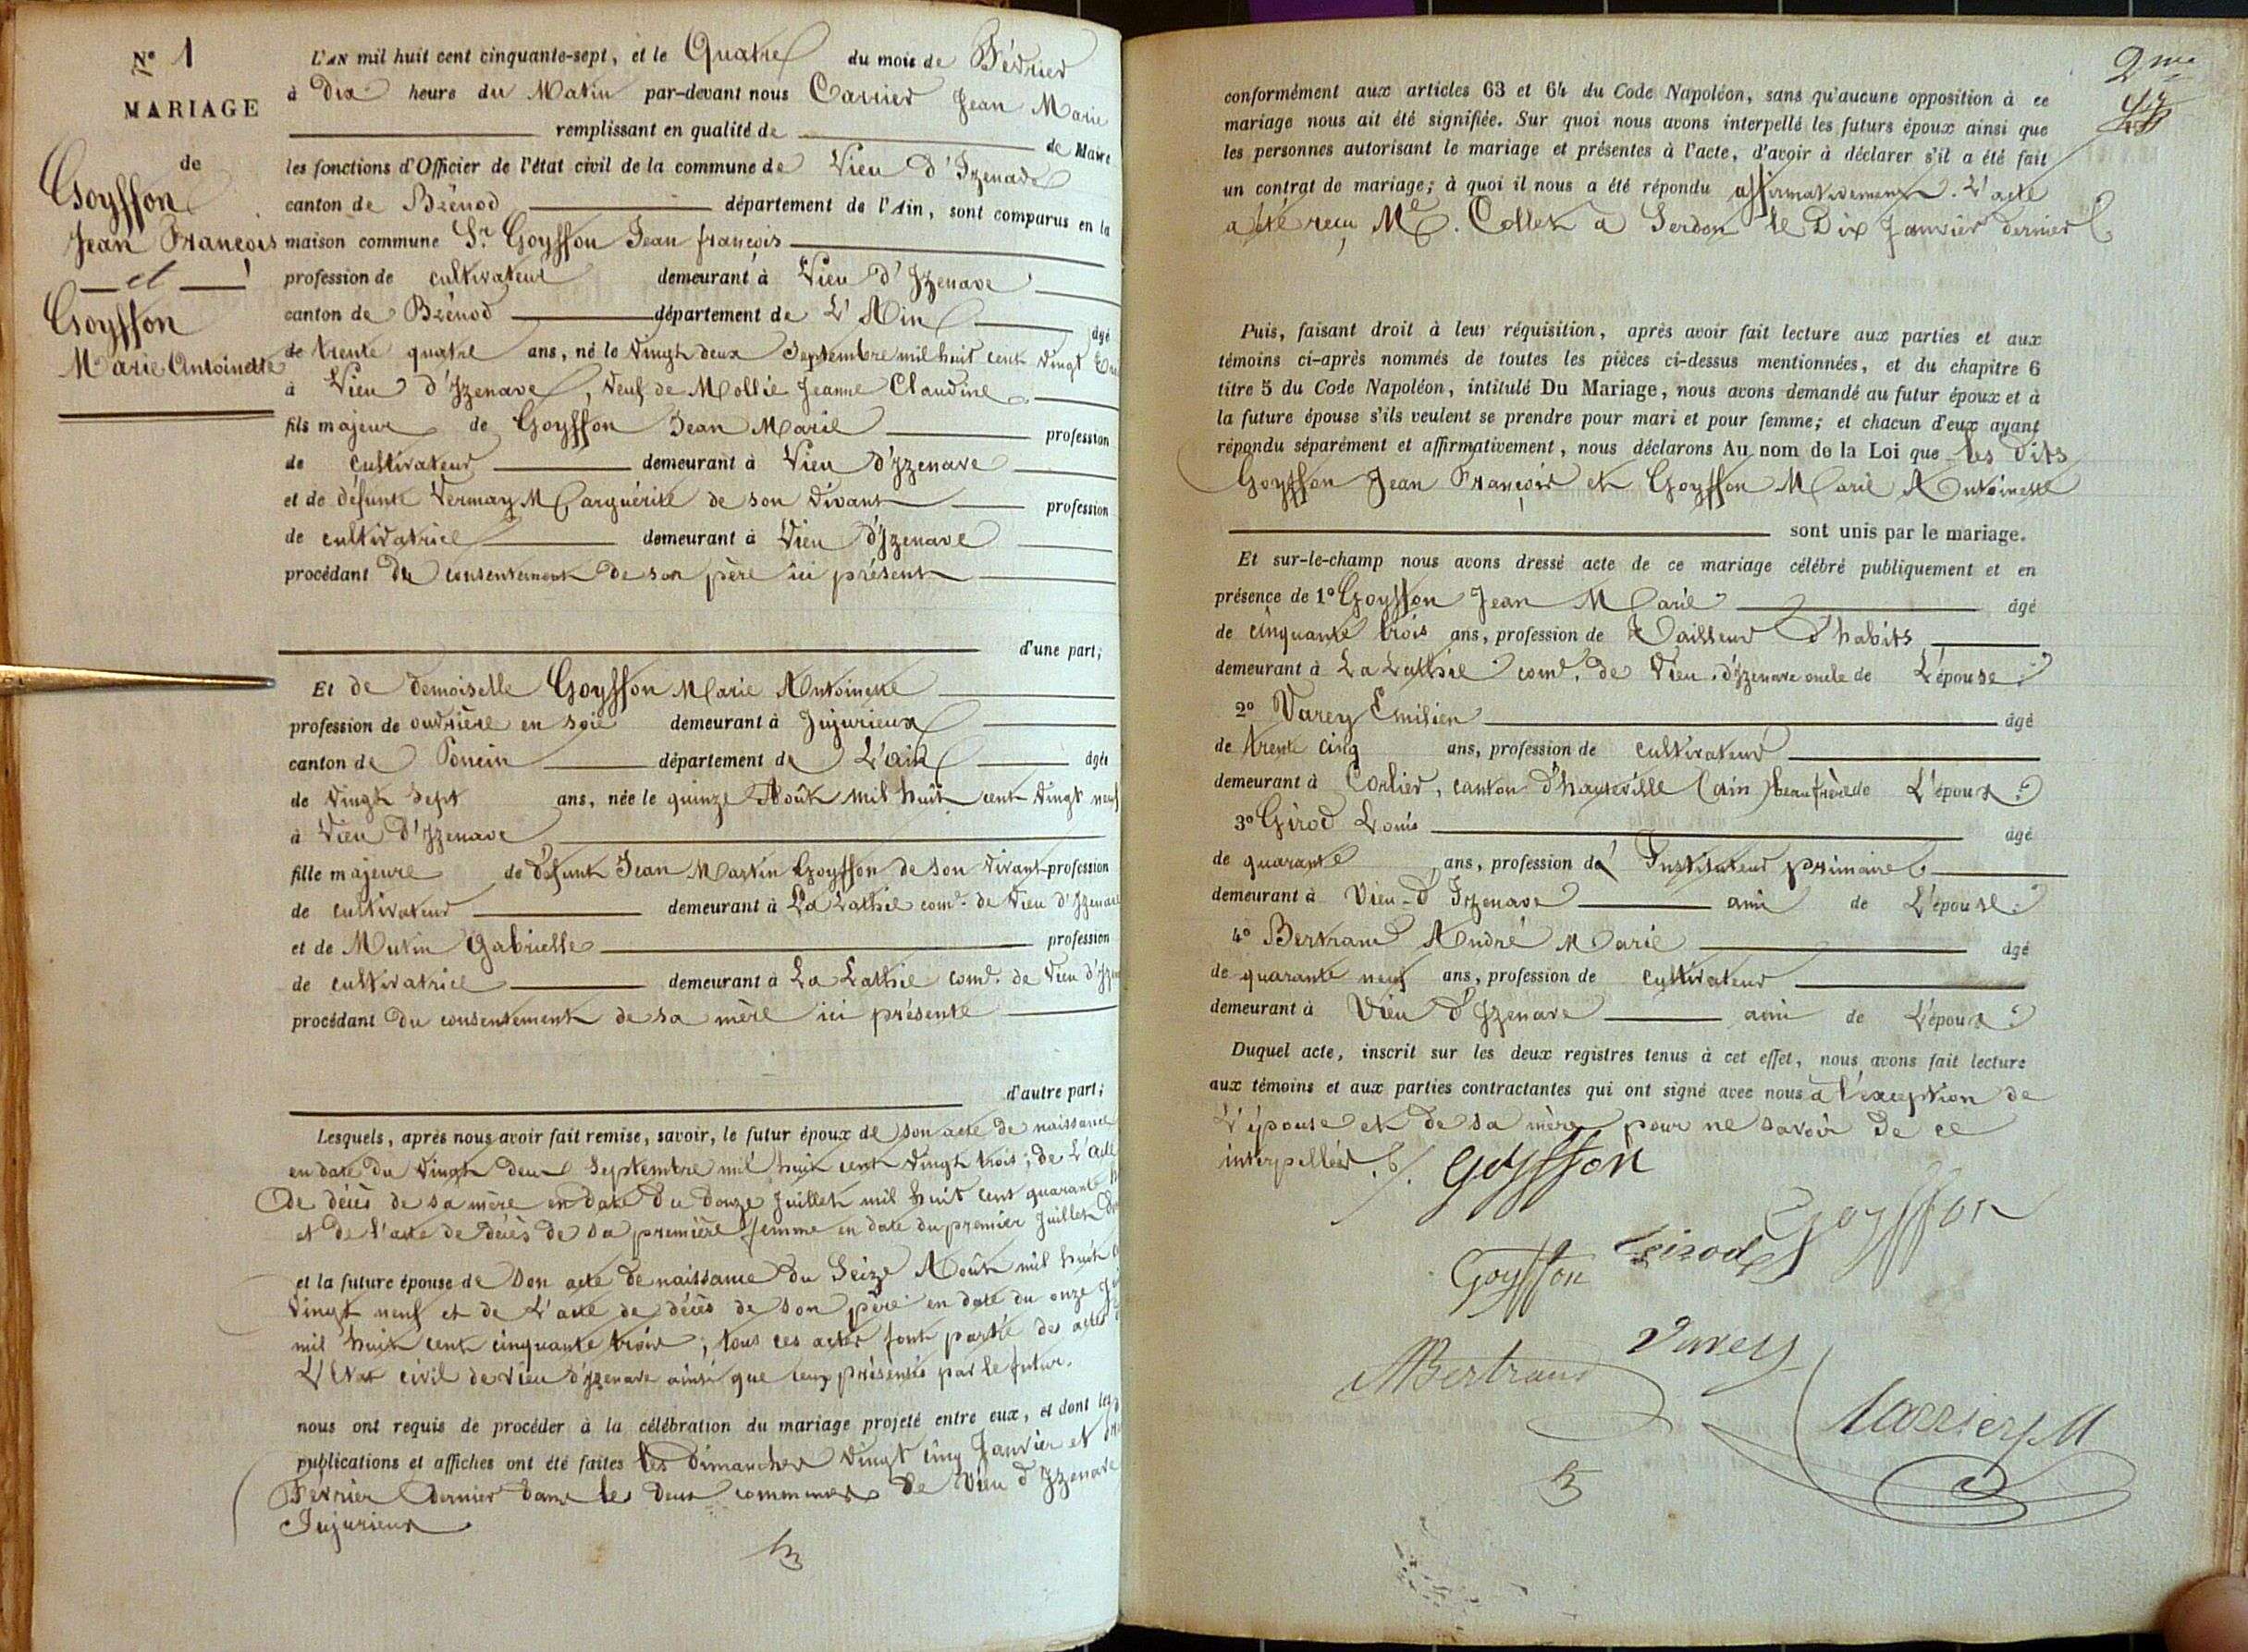 N° 1
MARIAGE
de
Goyffon
Jean François
et
Goyffon
Marie Antoinette
L'AN mil huit cent cinquante-sept, et le Quatre du mois de Février
à Dix heure du Matin par-devant nous Carrier Jean Marie
remplissant en qualité de de Maire
les fonctions d'Officier de l'état civil de la commune de Vieu d'Izenave
canton de Brénod département de l'Ain, sont comparus en la
maison commune Sr Goyffon Jean françois
profession de cultivateur demeurant à Vieu d'Izenave
canton de Brénod département de L'Ain âgé
de trente quatre ans, né le vingt deux Septembre mil huit cent vingt
à Vieu d'Izenave, veuf de Mollie Jeanne Claudine
fils majeur de Goyffon Jean Marie profession
de cultivateur demeurant à Vieu d'Izenave
et de défunte Vermay Marguérite de son vivant profession
de cultivatrice demeurant à Vieu d'Izenave
procédant du consentement de son père ici présent
d'une part;
Et de demoiselle Goyffon Marie Antoinette
profession de ouvrière en soie demeurant à Jujurieux
canton de Poncin département de L'ain âgée
de vingt sept ans, née le quinze Août mil huit cent vingt neuf
à Vieu d'Izenave
fille majeure de défunt Jean Martin Goyffon de son vivant profession
de cultivateur demeurant à La Lathie comne de Vieu d'Izenave
et de Mutin Gabrielle profession
de cultivatrice demeurant à La Lathie comne de Vieu
procédant du consentement de sa mère ici présente
d'autre part;
Lesquels, après nous avoir fait remise, savoir, le futur époux de son acte de naissance
en date du vingt deux Septembre mil huit cent vingt trois; de L'acte
de décès de sa mère en date du douze Juillet mil huit cent quarante
et de l'acte de décès de sa première femme en date du premier Juillet
et la future épouse de son acte de naissance du Seize Août mil huit
vingt neuf et de L'acte de décès de son père en date du onze
mil huit cent cinquante trois; tous ces actes font partie des actes
L'Etat civil de Vieu d'Izenave ainsi que ceux présentés par le futur.
nous ont requis de procéder à la célébration du mariage projeté entre eux, et dont les
publications et affiches ont été faites les Dimanches vingt cinq Janvier et
Février dernier dans les deux communes de Vieu d'Izenave
Jujurieux
2me
conformément aux articles 63 et 64 du Code Napoléon, sans qu'aucune opposition à ce
mariage nous ait été signifiée. Sur quoi nous avons interpellé les futurs époux ainsi que
les personnes autorisant le mariage et présentes à l'acte, d'avoir à déclarer s'il a été fait
un contrat de mariage; à quoi il nous a été répondu affirmativement. L'acte
a été reçu Me. Collet à Serdon le Dix Janvier dernier
Puis, faisant droit à leur réquisition, après avoir fait lecture aux parties et aux
témoins ci-après nommés de toutes les pièces ci-dessus mentionnées, et du chapitre 6
titre 5 du Code Napoléon, intitulé Du Mariage, nous avons demandé au futur époux et à
la future épouse s'ils veulent se prendre pour mari et pour femme; et chacun d'eux ayant
répondu séparément et affirmativement, nous déclarons Au nom de la Loi que les dits
Goyffon Jean François et Goyffon Marie Antoinette
sont unis par le mariage.
Et sur-le-champ nous avons dressé acte de ce mariage célébré publiquement et en
présence de 1° Goyffon Jean Marie âgé
de cinquante trois ans, profession de Tailleur d'habits
demeurant à La Lathie comne de Vieu d'Izenave oncle de L'épouse
2° Varey Emilien âgé
de trente cinq ans, profession de cultivateur
demeurant à Corlier, canton d'hauteville (ain) beau frère de L'époux
3° Girod Louis âgé
de quarante ans, profession d' Instituteur primaire
demeurant à Vieu-d'Izenave ami de L'épouse
4° Bertrand André Marie âgé
de quarante neuf ans, profession de cultivateur
demeurant à Vieu d'Izenave ami de L'époux
Duquel acte, inscrit sur les deux registres tenus à cet effet, nous avons fait lecture
aux témoins et aux parties contractantes qui ont signé avec nous à l'exception de
L'épouse et de sa mère pour ne savoir de ce
interpellées
Goyffon
Goyffon
Goyffon Girod
Varey
Bertrand
Carrier JM